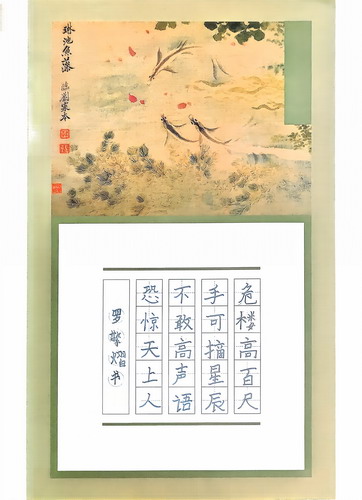 琳池魚藻
臨劉寀本
危楼高百尺
手可摘星辰
不敢高声语
恐惊天上人
罗擎熠书